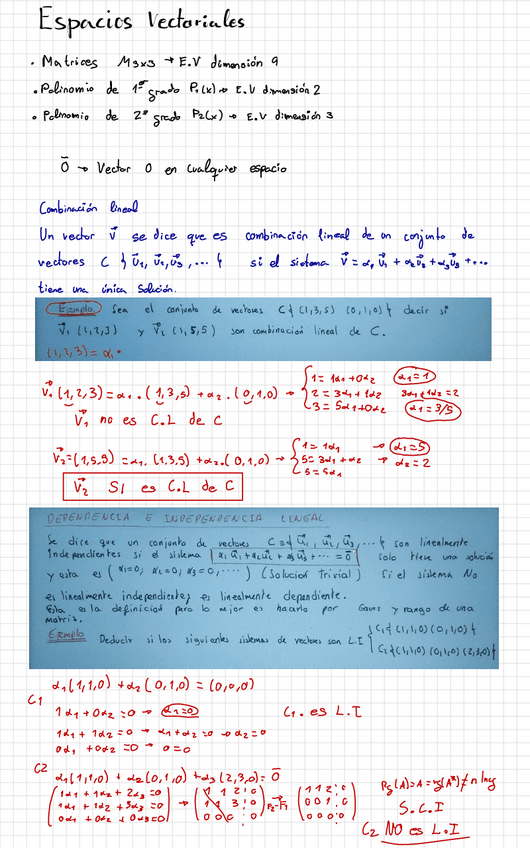 Espacios Vectoriales
• Matrices M3x3 → E.V dimensión 9
• Polinomio de 1er grado P1(x) → E.V dimensión 2
• Polinomio de 2º grado P2(x) → E.V dimensión 3
0̄ → Vector 0 en cualquier espacio
Combinación lineal
Un vector v⃗ se dice que es combinación lineal de un conjunto de
vectores C { u⃗1, u⃗2, u⃗3, ... } si el sistema v⃗ = α1 u⃗1 + α2 u⃗2 + α3 u⃗3 + ...
tiene una única solución.
Ejemplo Sea el conjunto de vectores C { (1,3,5) (0,1,0) } decir si
V⃗1 (1,2,3) y V⃗2 (1,5,5) son combinación lineal de C.
(1,2,3) = α1 •
V⃗1 (1,2,3) = α1 · (1,3,5) + α2 · (0,1,0) → { 1 = 1α1 + 0α2 α1 = 1
2 = 3α1 + 1α2 3α1 + 1α2 = 2
3 = 5α1 + 0α2 α1 = 3/5
V⃗1 no es C.L de C
V⃗2 = (1,5,5) = α1 · (1,3,5) + α2 · (0,1,0) → { 1 = 1α1 → α1 = 5
5 = 3α1 + α2 → α2 = 2
5 = 5α1
V⃗2 SI es C.L de C
DEPENDENCIA E INDEPENDENCIA LINEAL
Se dice que un conjunto de vectores C = { u⃗1, u⃗2, u⃗3, ... } son linealmente
Independientes si el sistema α1 u⃗1 + α2 u⃗2 + α3 u⃗3 + ... = 0̄ solo tiene una solución
y esta es ( α1=0, α2=0, α3=0, ... ) (Solución Trivial) Si el sistema No
es linealmente independiente, es linealmente dependiente.
Esta es la definición pero lo mejor es hacerlo por Gauss y rango de una
matriz.
Ejemplo Deducir si los siguientes sistemas de vectores son L.I { C1 { (1,1,0) (0,1,0) }
C2 { (1,1,0) (0,1,0) (2,3,0) }
α1 (1,1,0) + α2 (0,1,0) = (0,0,0)
C1
1α1 + 0α2 = 0 → α1 = 0 C1 . es L.I
1α1 + 1α2 = 0 → α1 + α2 = 0 → α2 = 0
0α1 + 0α2 = 0 → 0 = 0
C2
α1 (1,1,0) + α2 (0,1,0) + α3 (2,3,0) = 0̄
( 1α1 + 1α2 + 2α3 = 0 → ( 1 1 2 : 0 ( 1 1 2 : 0
1α1 + 1α2 + 3α3 = 0 1 1 3 : 0 F2-F1 → 0 0 1 : 0
0α1 + 0α2 + 0α3 = 0 ) 0 0 0 : 0 ) 0 0 0 : 0 )
S.C.I
C2 NO es L.I